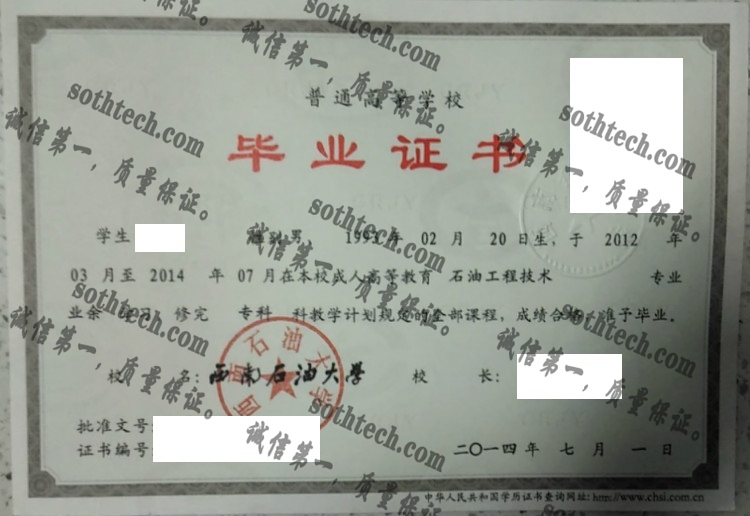 普通高等学校
毕业证书
学生 性别男 1993年 02月 20日生，于 2012 年
03 月至 2014 年 07月在本校成人高等教育 石油工程技术 专业
业余 学习 修完 专科 科教学计划规定的全部课程，成绩合格，准予毕业。
校 名：西南石油大学 校 长：
西南石油大学
批准文号：
证书编号
二〇一四年 七月 一日
中华人民共和国学历证书查询网址：http://www.chsi.com.cn
sothtech.com
诚信第一，质量保证。
sothtech.com
诚信第一，质量保证。
sothtech.com
诚信第一，质量保证。
sothtech.com
诚信第一，质量保证。
sothtech.com
诚信第一，质量保证。
sothtech.com
诚信第一，质量保证。
sothtech.com
诚信第一，质量保证。
sothtech.com
诚信第一，质量保证。